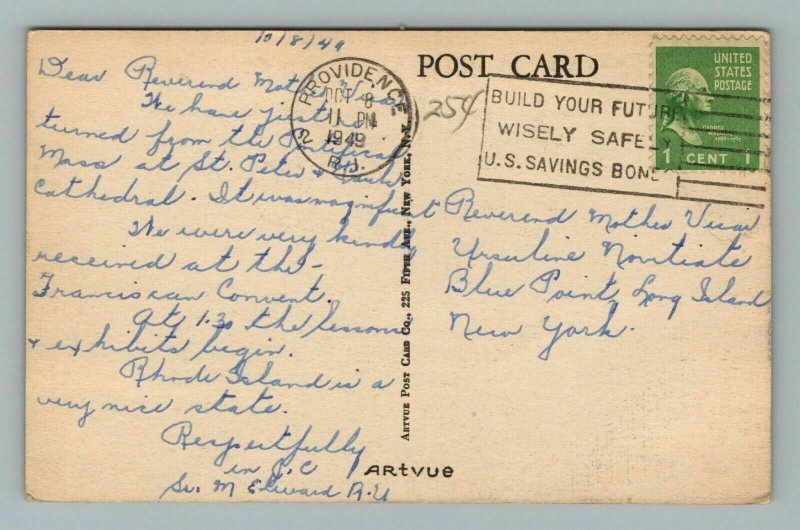 10/8/49
Dear Reverend Mother Vicar
We have just re
turned from the Pontifical
Mass at St. Peter + Paul's
Cathedral. It was magnificent
We were very kindly
received at the
Franciscan Convent.
At 1.30 the lessons
+ exhibits begin.
Rhode Island is a
very nice state.
Respectfully
in J.C
Sr. M Edward O.S.U
PROVIDENCE
OCT 8
11 PM
1949
2 R.I.
POST CARD
25¢
BUILD YOUR FUTURE
WISELY SAFELY
U.S. SAVINGS BONDS
UNITED
STATES
POSTAGE
GEORGE
1 CENT 1
Reverend Mother Vicar
Ursuline Novitiate
Blue Point, Long Island
New York.
ARTVUE POST CARD CO., 225 FIFTH AVE., NEW YORK, N.Y.
ARTVUE